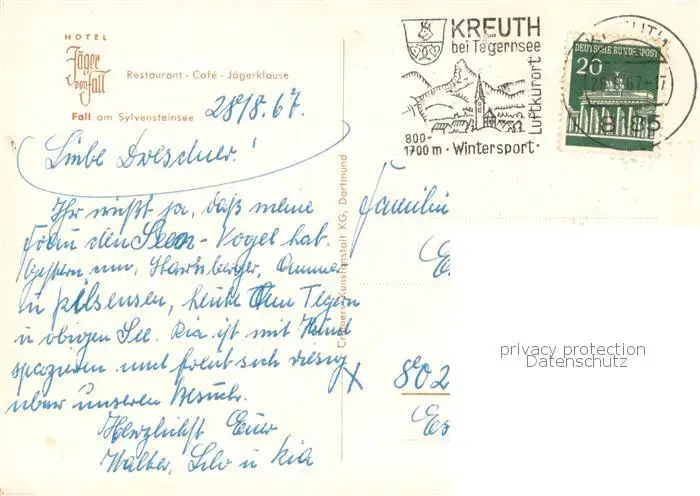 HOTEL
Jäger
von Fall
Restaurant - Café - Jägerklause
Fall am Sylvensteinsee
28/8.67.
Liebe Dresdner!
Ihr wißt ja, daß meine
Frau den Seen-Vogel hat.
Gestern nun, Starnberger, Ammer
u. Pilsensee, heute Tegern
u. obigen See. Ria ist mit Hund
spazieren und freut sich riesig
über unseren Besuch.
Herzlichst Euer
Walter, Lilo u Ria
Cramers Kunstanstalt KG, Dortmund
KREUTH
bei Tegernsee
Luftkurort
800-
1700 m · Wintersport ·
DEUTSCHE BUNDESPOST
20
67-17
8185
Familie
802
privacy protection
Datenschutz